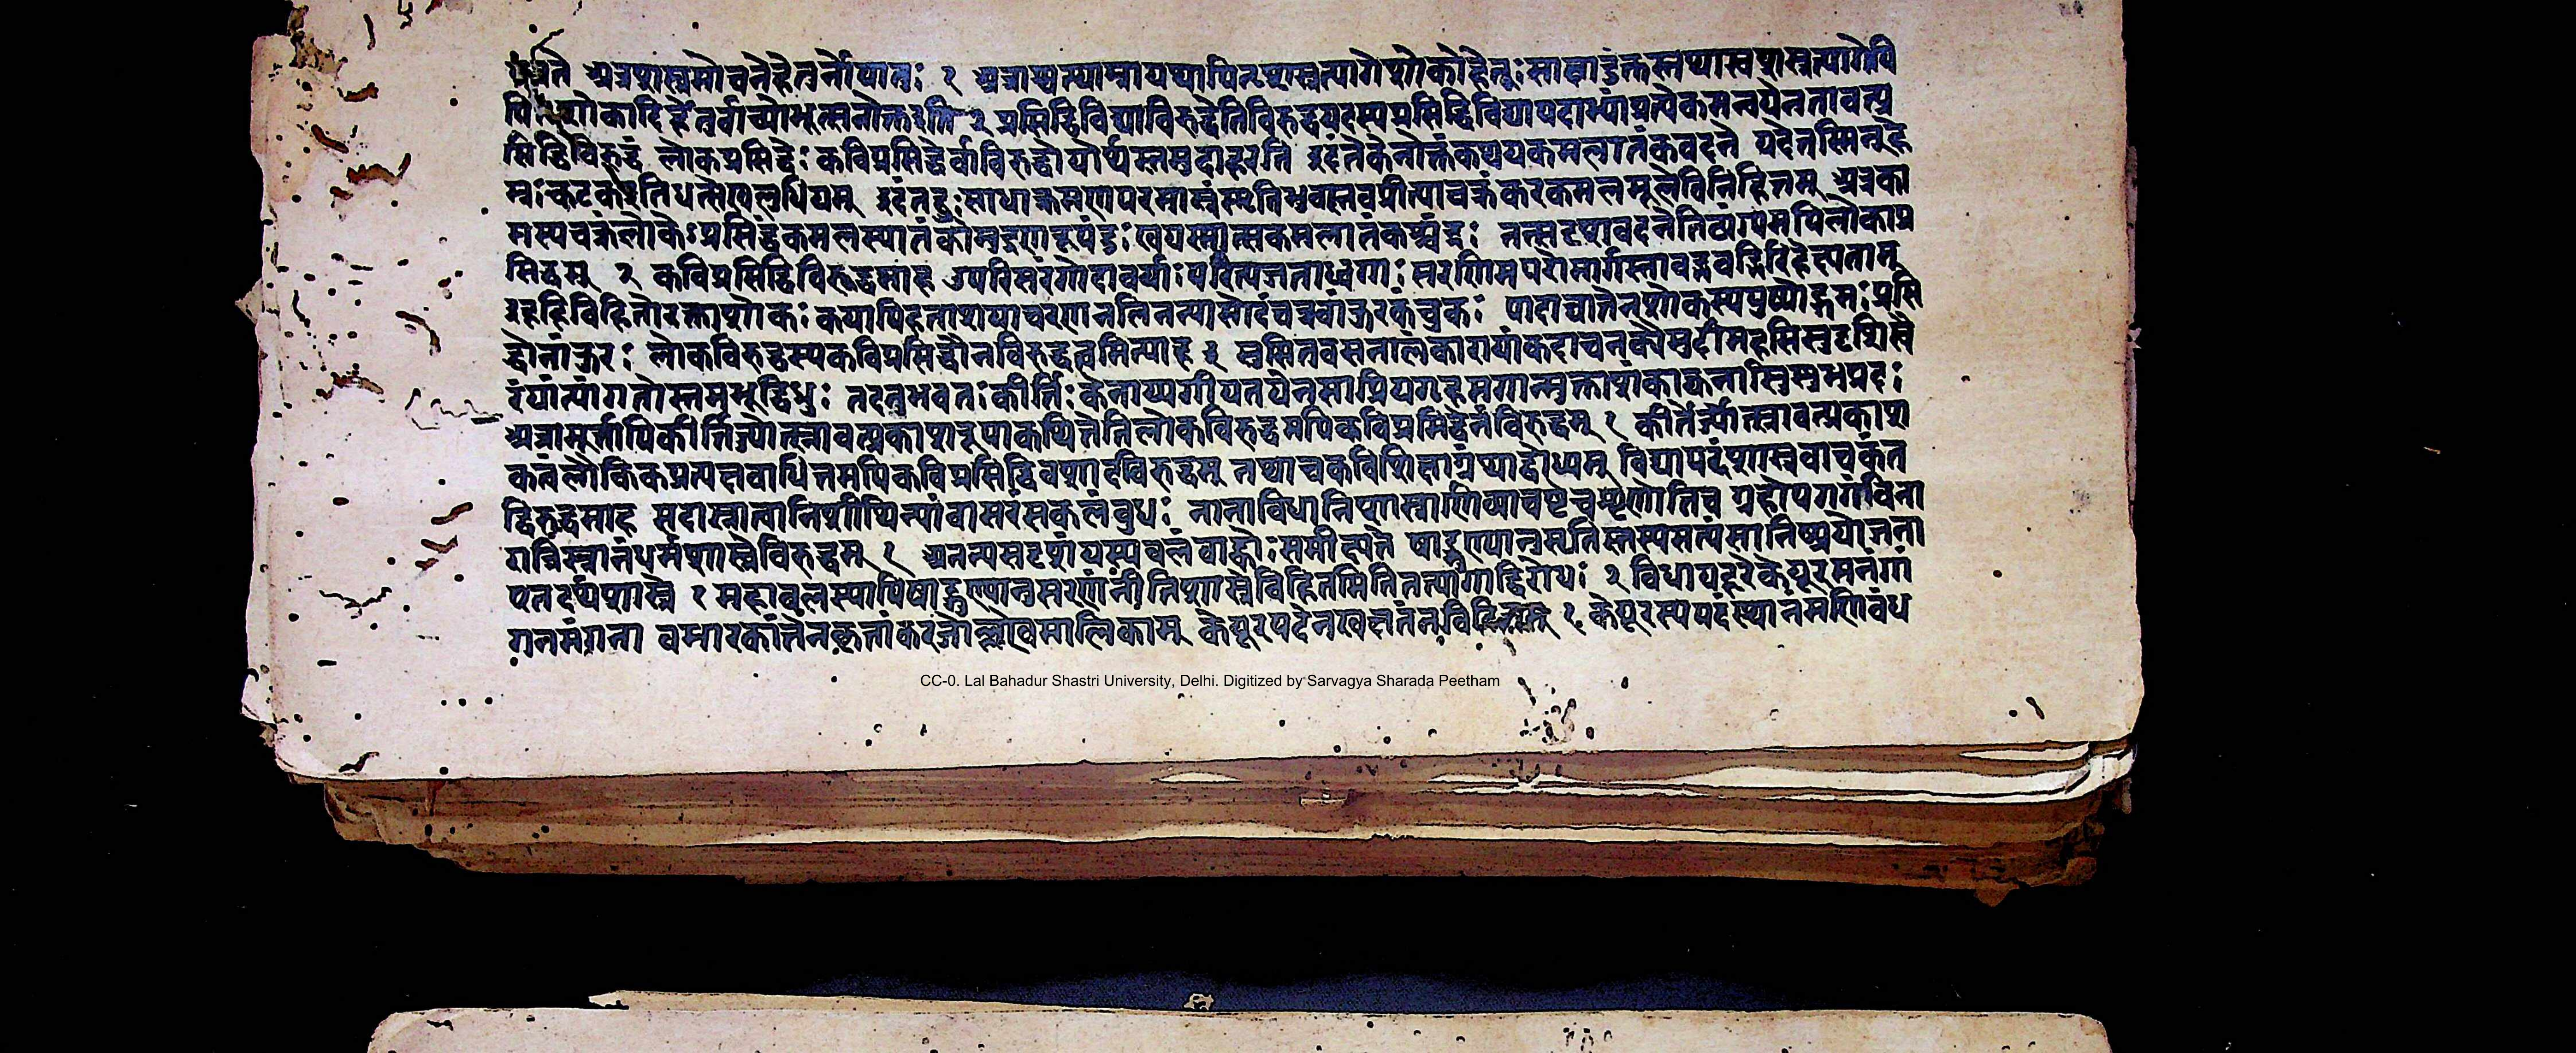 अत्रशस्त्रमोचनेहेतुर्नोपात्तः १ अत्राश्वत्थाम्नायथापितुःशस्त्रत्यागेशोकोहेतुः साक्षादुक्तस्तथास्वशस्त्रत्यागेपि
शोकादिर्हेतुर्वाच्योभूत्सनोक्तइति २ प्रसिद्धिविद्याविरुद्धेतिविरुद्धपदस्यप्रसिद्धिविद्यापदाभ्यांप्रत्येकमन्वयेनतावत्प्र
सिद्धिविरुद्धं लोकप्रसिद्धेः कविप्रसिद्धेर्वाविरुद्धोयोर्थस्तमुदाहरति इदंतेकेनोक्तंकथयकमलातंकवदने यदेतस्मिन्हे
म्नःकटकइतिधत्सेखलुधियम् इदंतद्दुःसाधाक्रमणपरमास्त्रंस्मृतिभुवातवप्रीत्याचक्रंकरकमलमूलेविनिहितम् अत्रका
मस्यचक्रंलोकेःप्रसिद्धंकमलस्यातंको तत्सदृशवदनेतिव्यंग्यमपिलोकाप्र
सिद्धम् २ कविप्रसिद्धिविरुद्धमाह उपरिसरंगोदावर्याःपरित्यजताध्वगाः सरणिमपरोमार्गस्तावद्भवद्भिरिहेक्ष्यताम्
इहहिविहितोरक्ताशोकः कयापिहताशयाचरणनलिनन्यासोदंचन्नवांकुरकंचुकः पादाघातेनशोकस्यपुष्पोद्गमःप्रसि
द्धोनांकुरः लोकविरुद्धस्यकविप्रसिद्धौनविरुद्धत्वमित्याह ३ सुसितवसनालंकारायांकदाचनकौमुदीमहसिसुदृशिस्वै
रंयांत्यांगतोस्तमभूद्विधुः तदनुभवतःकीर्त्तिःकेनाप्यगीयतयेनसाप्रियगृहमगान्मुक्ताशंकाक्वनासिसुभप्रदः
अत्रामूर्त्तापिकीर्त्तिर्ज्योत्स्नावत्प्रकाशरूपाकथितेतिलोकविरुद्धमपिकविप्रसिद्धेर्नविरुद्धम् १ कीर्तेर्ज्योत्स्नावत्प्रकाश
कत्वंलौकिकप्रत्यक्षबाधितमपिकविप्रसिद्धिवशादविरुद्धम् तथाचकविशिक्षाग्रंथाद्बोध्यम् विद्यापदंशास्त्रवाचकंत
द्विरुद्धमाह सदास्नात्वानिशीथिन्यांवासरंसकलंबुधः नानाविधानिशास्त्राणिव्याचष्टेचशृणोतिच ग्रहोपरागंविना
रात्रिस्नानंधर्मशास्त्रेविरुद्धम् १ अनन्यसदृशंयस्यबलंबाह्वोःसमीक्ष्यते षाड्गुण्यानुसृतिस्तस्यसत्यंसानिष्प्रयोजना
एतदर्थशास्त्रे १ महाबलस्यापिषाड्गुण्यानुसरणंनीतिशास्त्रेविहितमितितत्त्यागाद्विरोधः २ विधायदूरेकेयूरमनंगां
गनमंगना बभारकांतेनकृतांकरजोल्लेखमालिकाम् केयूरपदेनखक्षतंनविहितम् १ केयूरस्यपदंस्थानंमणिबंध
CC-0. Lal Bahadur Shastri University, Delhi. Digitized by Sarvagya Sharada Peetham